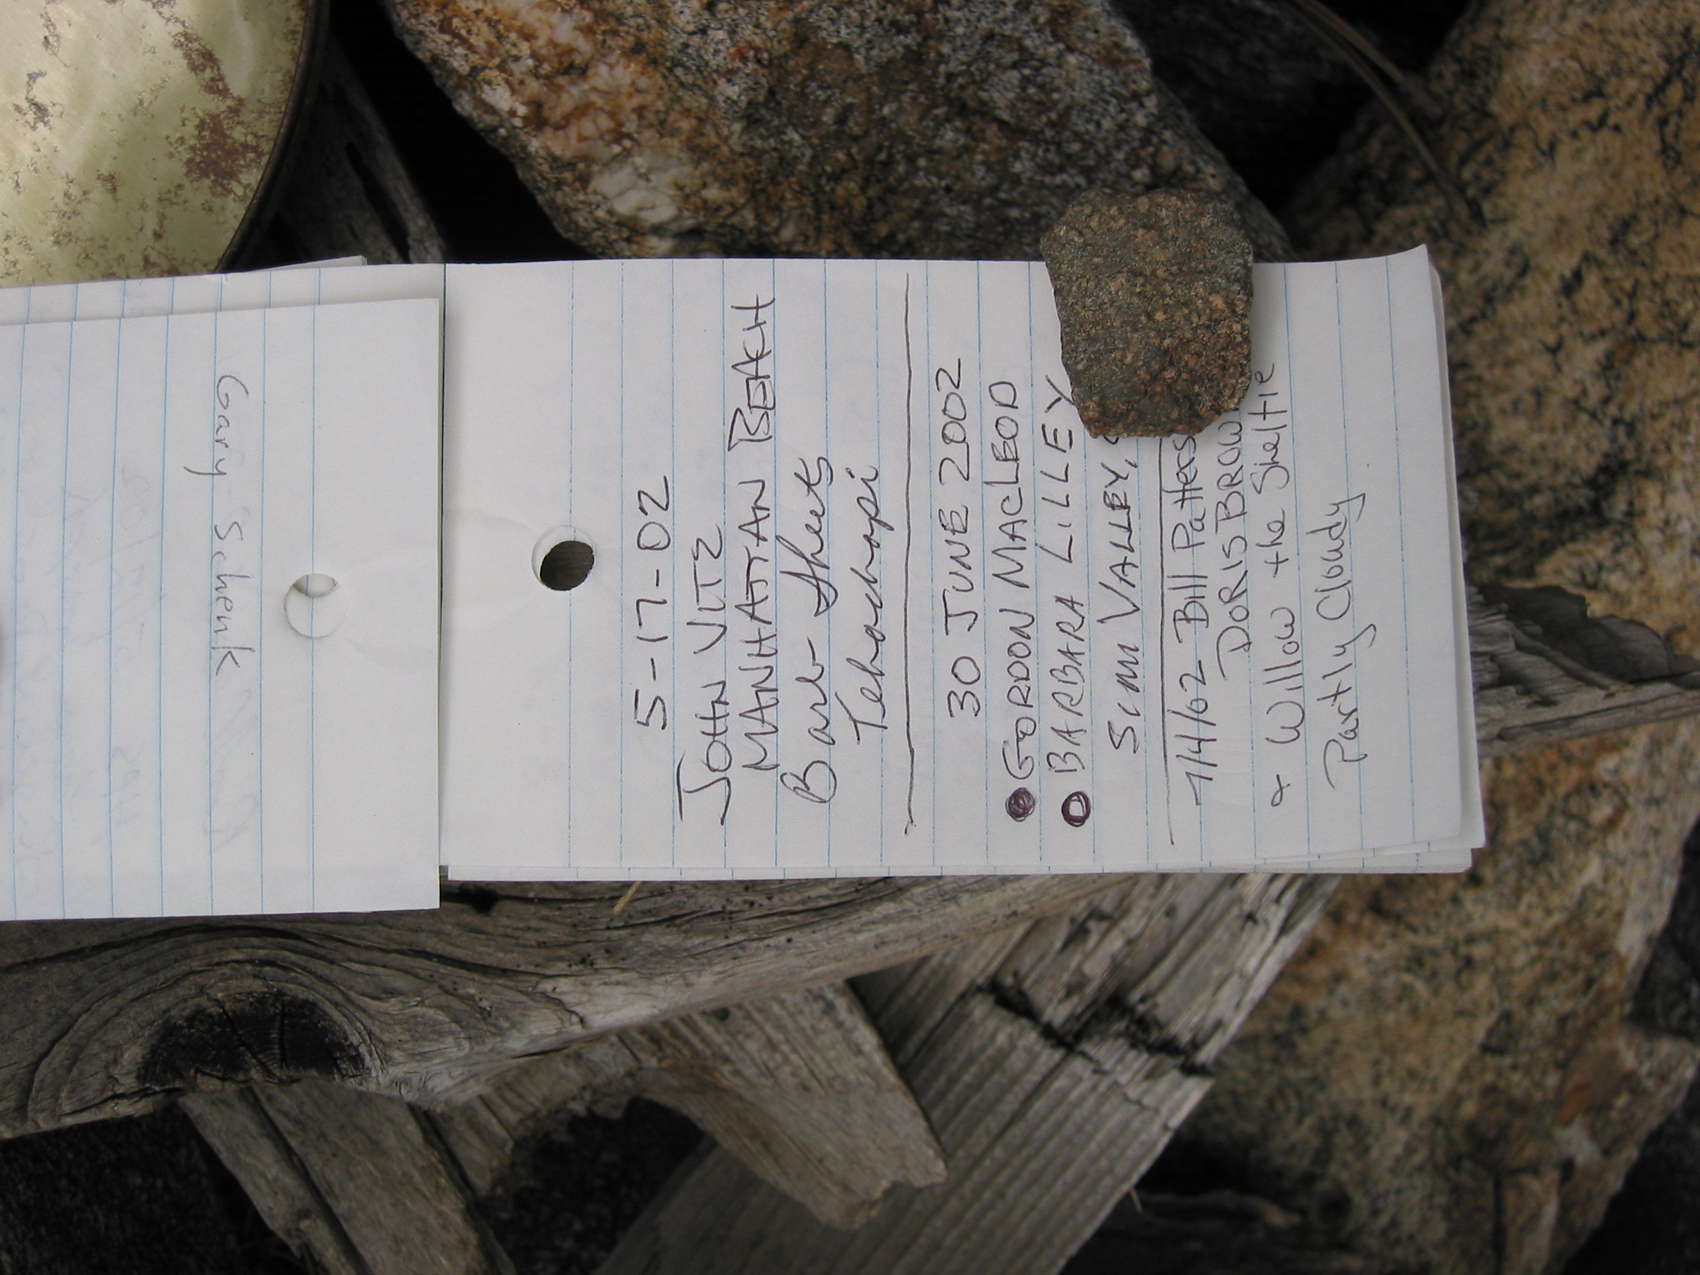 5-17-02
JOHN VITZ
MANHATTAN BEACH
Barb Sheets
Tehachapi
30 JUNE 2002
GORDON MACLEOD
BARBARA LILLEY
SIMI VALLEY,
7/4/02 Bill
DORIS
& Willow the Sheltie
Partly Cloudy
Gary Schenk